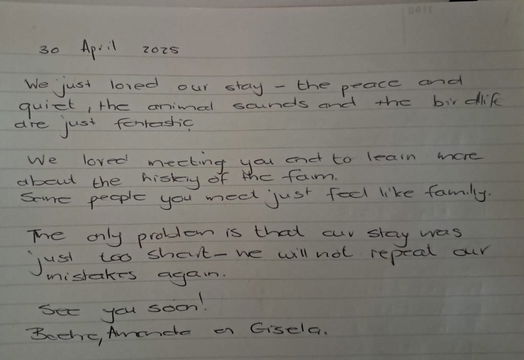 30 April 2025
We just loved our stay – the peace and
quiet, the animal sounds and the birdlife
are just fantastic
We loved meeting you and to learn more
about the history of the farm.
Some people you meet just feel like family.
The only problem is that our stay was
just too short – we will not repeat our
mistakes again.
See you soon!
Amanda en Gisela.